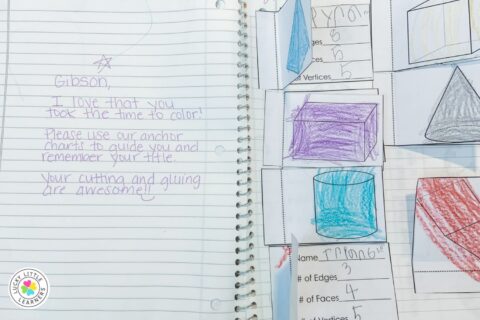 Gibson,
I love that you
took the time to color!
Please use our anchor
charts to guide you and
remember your title.
Your cutting and gluing
are awesome!!
LUCKY LITTLE LEARNERS
5
Vertices 5
Name
# of Edges 3
# of Faces 4
# of Vertices 5